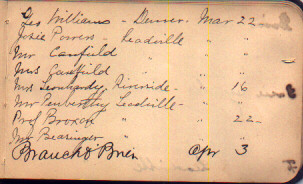 Geo Williams - Denver. Mar 22
Josie Powers - Leadville "
Mr Canfield " "
Mrs Gadfield " "
Mrs Leonhardy, Riverside - " 16
Mr Penberthy Leadville - "
Prof Broxon " " 22 -
Mr Bearinger " "
Brauch & Brien Apr 3